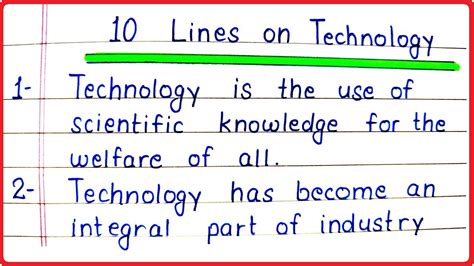 10 Lines on Technology
1- Technology is the use of
scientific knowledge for the
welfare of all.
2- Technology has become an
integral part of industry